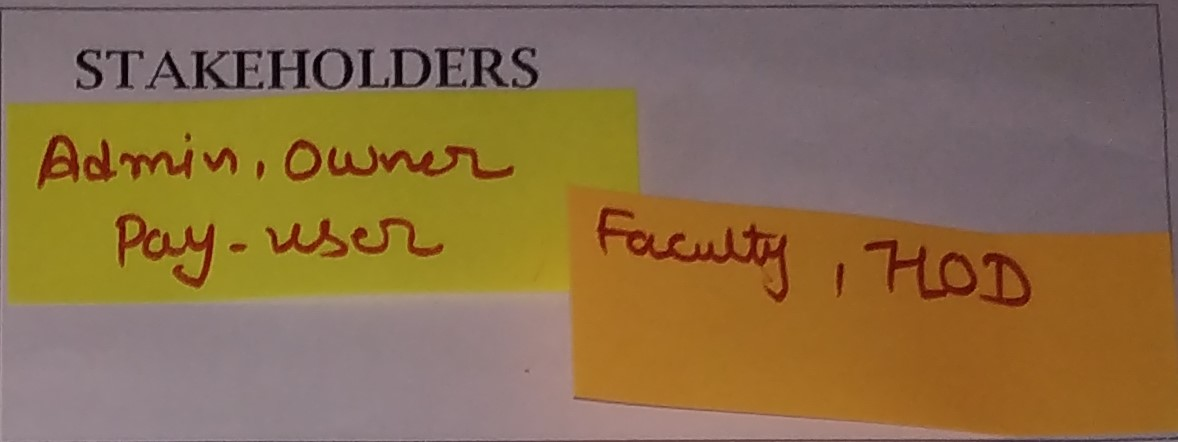 STAKEHOLDERS
Admin, Owner
Pay-user
Faculty, HOD